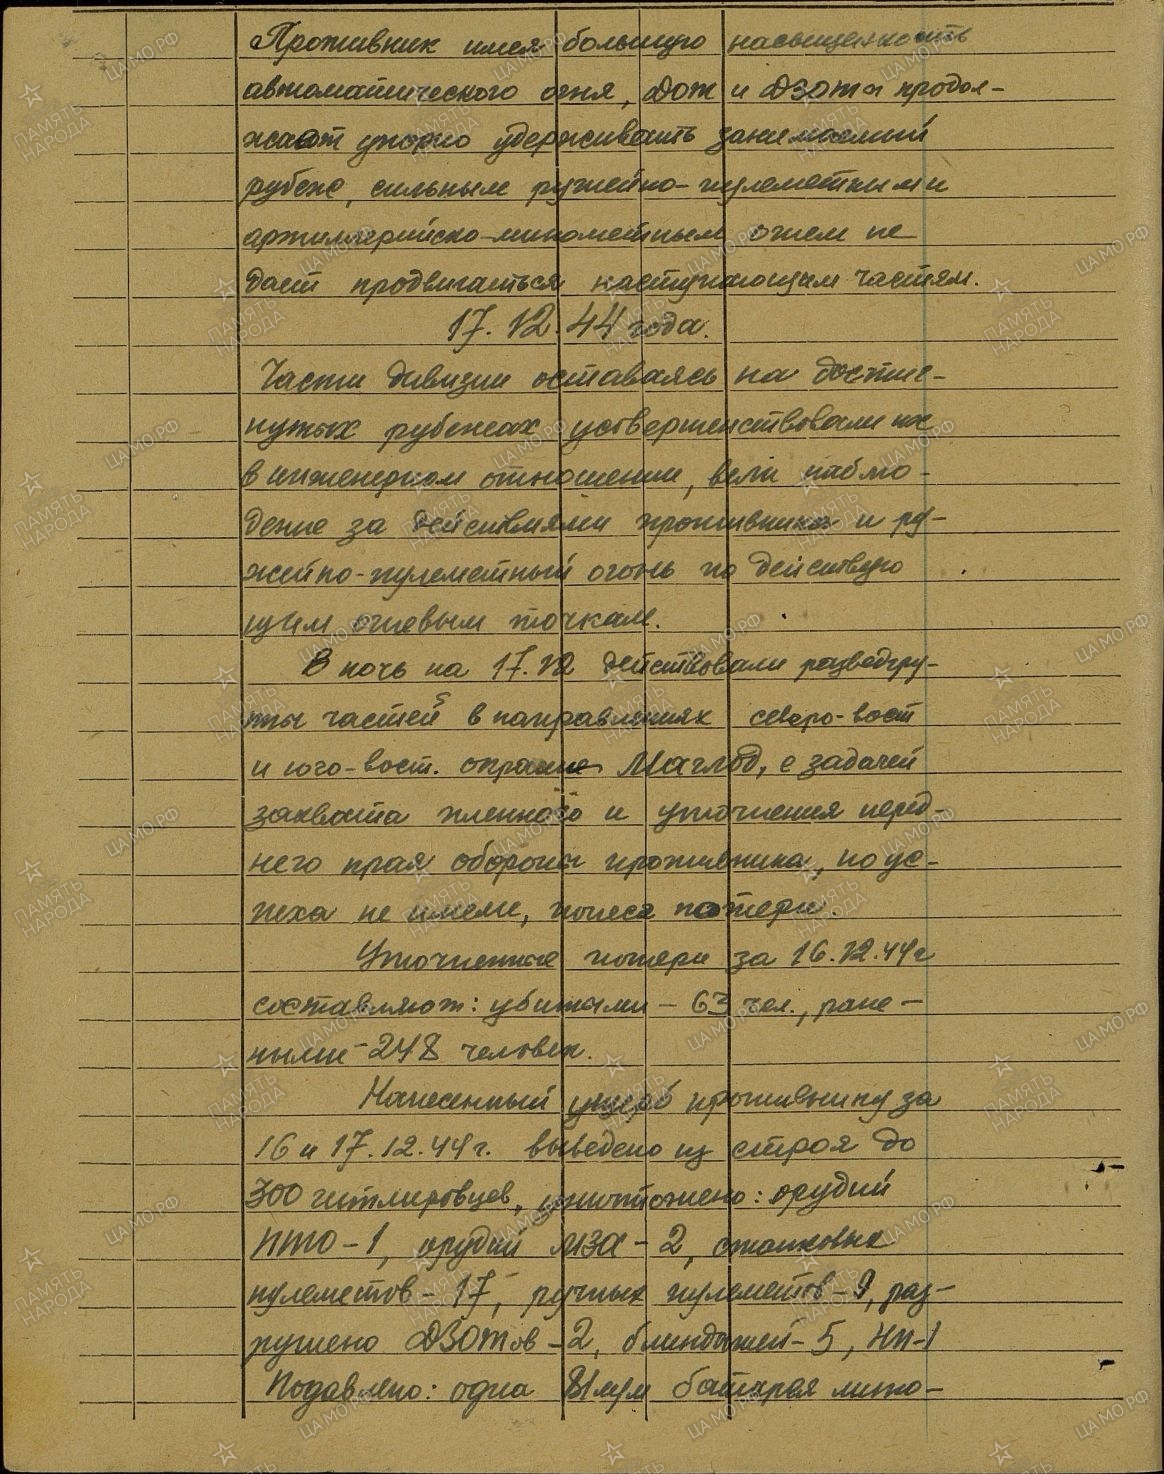 Противник имея большую насыщенность
автоматического огня, Дот и ДЗОты продол-
жают упорно удерживать занимаемый
рубеж, сильным ружейно-пулеметными
артиллерийско-минометным огнем не
дает продвигаться наступающим частям.
17.12.44 года.
Части дивизии оставаясь на достиг-
нутых рубежах усовершенствовали их
в инженерном отношении, вели наблю-
дение за действиями противника и ру-
жейно-пулеметный огонь по действую
щим огневым точкам.
В ночь на 17.12 действовали разведгру-
ппы частей в направлениях северо-вост
и юго-вост. окраине Маглод, с задачей
захвата пленного и уточнения перед-
него края обороны противника, но ус-
пеха не имели, понеся потери.
Уточненные потери за 16.12.44 г
составляют: убитыми - 63 чел., ране-
ными - 248 человек.
Нанесенный ущерб противнику за
16 и 17.12.44 г. выведено из строя до
300 гитлеровцев, уничтожено: орудий
ПТО - 1, орудий МЗА - 2, станковых
пулеметов - 17, ручных пулеметов - 9, раз-
рушено ДЗОтов - 2, блиндажей - 5, НП-1
Подавлено: одна 81 мм батарея мино-
ПАМЯТЬ НАРОДА
ЦАМО.РФ